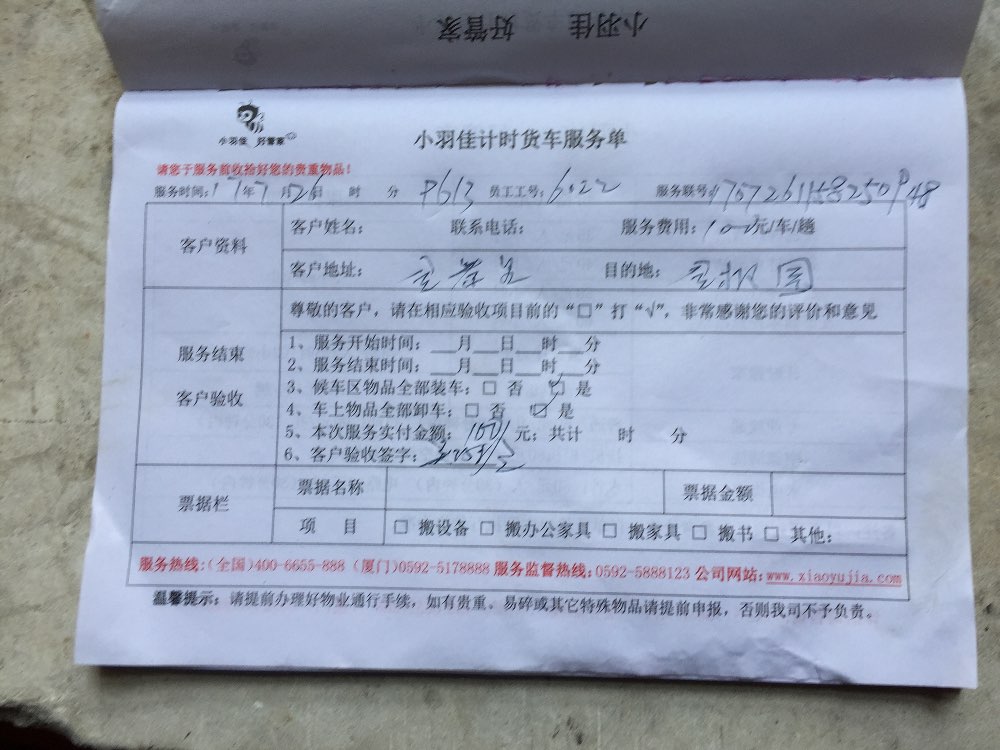 小羽佳 好管家
小羽佳 好管家
小羽佳计时货车服务单
请您于服务前收拾好您的贵重物品！
服务时间：17年7月26日 时 分 员工工号：6022 服务联号
客户资料
客户姓名： 联系电话： 服务费用：100元/车/趟
客户地址： 目的地：
服务结束
客户验收
尊敬的客户，请在相应验收项目前的“□”打“√”，非常感谢您的评价和意见
1、服务开始时间：___月___日___时___分
2、服务结束时间：___月___日___时___分
3、候车区物品全部装车：□ 否 ☑ 是
4、车上物品全部卸车：□ 否 ☑ 是
5、本次服务实付金额：100元；共计 时 分
6、客户验收签字：
票据栏
票据名称 票据金额
项 目 □ 搬设备 □ 搬办公家具 □ 搬家具 □ 搬书 □ 其他：
服务热线：(全国)400-6655-888 (厦门)0592-5178888 服务监督热线：0592-5888123 公司网站：www.xiaoyujia.com
温馨提示：请提前办理好物业通行手续，如有贵重、易碎或其它特殊物品请提前申报，否则我司不予负责。